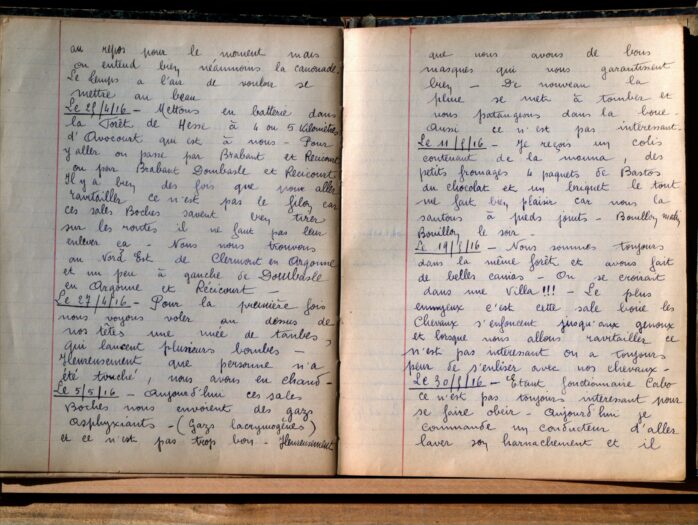 au repos pour le moment mais
on entend bien néanmoins la canonade
Le temps a l'air de vouloir se
mettre au beau
Le 25/4/16 – Mettons en batterie dans
la Forêt de Hesse à 4 ou 5 Kilomètres
d'Avocourt qui est à nous – Pour
y aller on passe par Brabant et Récicourt
ou par Brabant Dombasle et Récicourt
Il y a bien des fois que pour aller
ravitailler ce n'est pas le filon car
ces sales Boches savent bien tirer
sur les routes il ne faut pas leur
enlever ça – Nous nous trouvons
au Nord Est de Clermont en Argonne
et un peu à gauche de Dombasle
en Argonne et Récicourt –
Le 27/4/16 – Pour la première fois
nous voyons voler au dessus de
nos têtes une nuée de taubes,
qui lancent plusieurs bombes –
Heureusement que personne n'a
été touché, nous avons eu chaud –
Le 5/5/16 – Aujourd'hui ces sales
Boches nous envoient des gaz
asphyxiants – (Gazs lacrymogènes)
et ce n'est pas trop bon – Heureusement
que nous avons de bons
masques qui nous garantissent
bien – De nouveau la
pluie se met à tomber et
nous pataugeons dans la boue
Aussi ce n'est pas interessant –
Le 11/5/16 – Je reçois un colis
contenant de la mouna, des
petits fromages 4 paquets de Bastos
du chocolat et un briquet le tout
me fait bien plaisir car nous la
sautons à pieds joints – Bouillon
Bouillon le soir –
Le 19/5/16 – Nous sommes toujours
dans la même forêt et avons fait
de belles canias – On se croirait
dans une Villa !!! – Le plus
ennuyeux c'est cette sale boue les
Chevaux s'enfoncent jusqu'aux genoux
et lorsque nous allons ravitailler ce
n'est pas interessant on a toujours
peur de s'enliser avec nos chevaux –
Le 30/5/16 – Etant fonctionnaire Cabo
ce n'est pas toujours interessant pour
se faire obeir – Aujourd'hui je
commande un conducteur d'aller
laver son harnachement et il